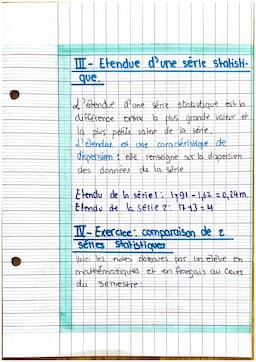 III - Etendue d'une série statisti-
que.
L'étendue d'une série statistique est la
différence entre la plus grande valeur et
la plus petite valeur de la série.
L'étendue est une caractéristique de
dispersion : elle renseigne sur la dispersion
des données de la série
Etendu de la série 1 : 1,91 - 1,62 = 0,24m.
Etendu de la série 2 : 17-13 = 4
IV - Exercice : comparaison de 2
séries statistiques
Voici les notes obtenues par un élève en
mathématiques et en français au cours
du semestre :